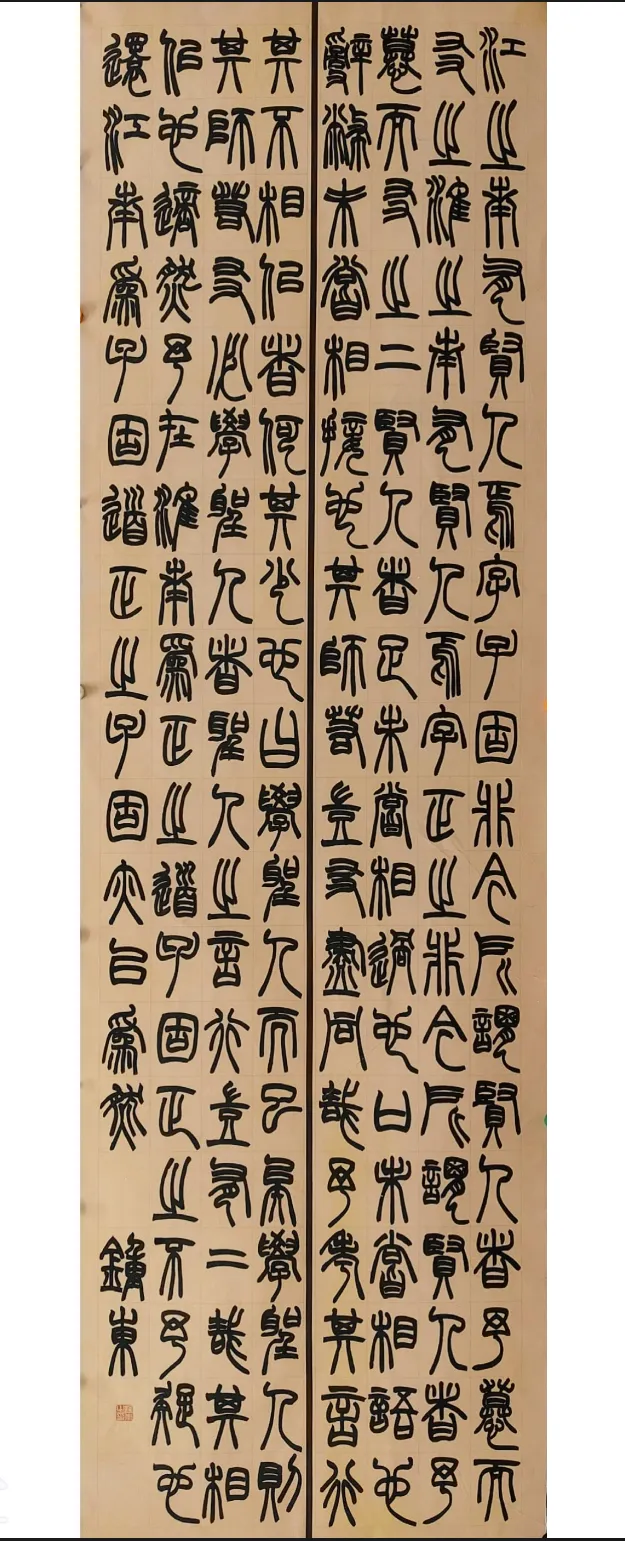 江之南有賢人焉字子固非今所謂賢人者予慕而
友之淮之南有賢人焉字正之非今所謂賢人者予
慕而友之二賢人者足未嘗相過也口未嘗相語也
辭幣未嘗相接也其師若豈友盡同哉予考其言行
其不相似者何其少也曰學聖人而已矣學聖人則
其師若友必學聖人者聖人之言行豈有二哉其相
似也適然予在淮南為正之道子固正之不予疑也
還江南為子固道正之子固亦以為然 鍾東